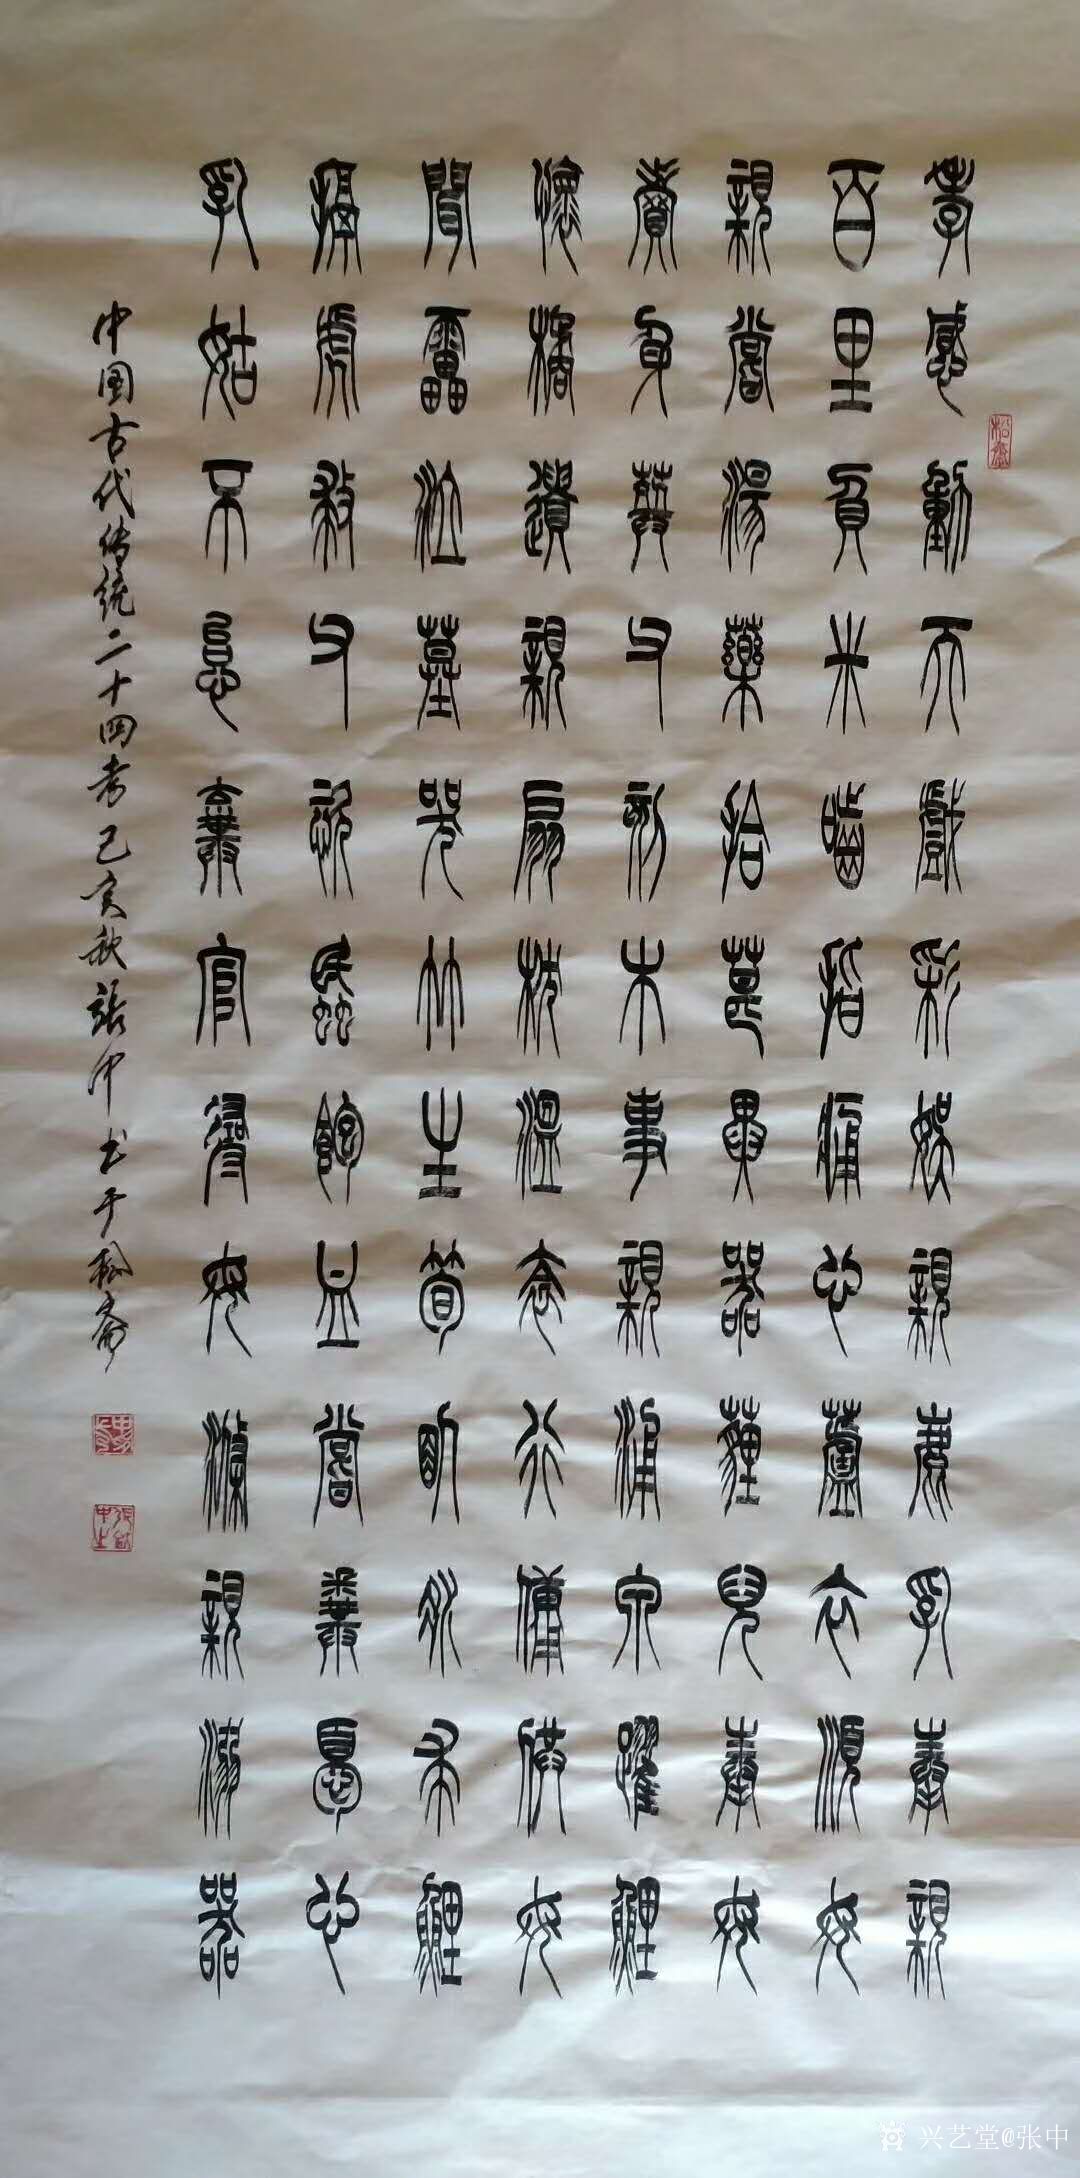 孝感動天戲彩娛親鹿乳奉親
百里負米嚙指痛心蘆衣順母
親嘗湯藥拾葚異器埋兒奉母
賣身葬父刻木事親湧泉躍鯉
懷橘遺親扇枕溫衾行傭供母
聞雷泣墓哭竹生筍臥冰求鯉
搤虎救父恣蚊飽血嘗糞憂心
乳姑不怠棄官尋母滌親溺器
中国古代传统二十四孝己亥秋張中书于松斋
松齋
兴艺堂@张中